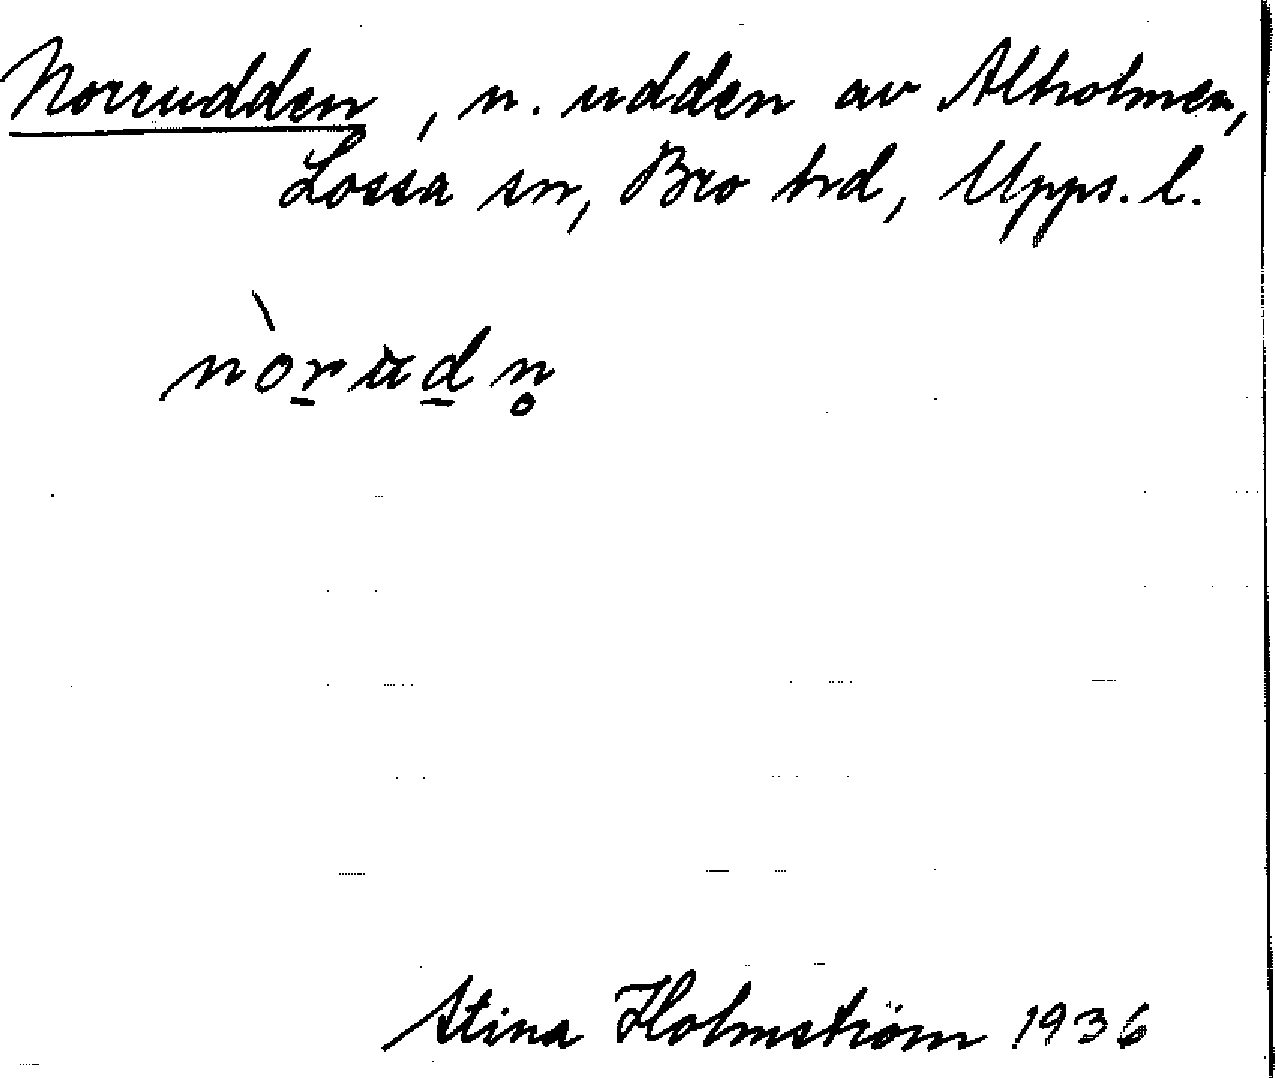 Norrudden, n. udden av Alholmen,
Lossa sn, Bro hd, Upps. l.
nòr̲ùd̲n̥
Stina Holmström 1936